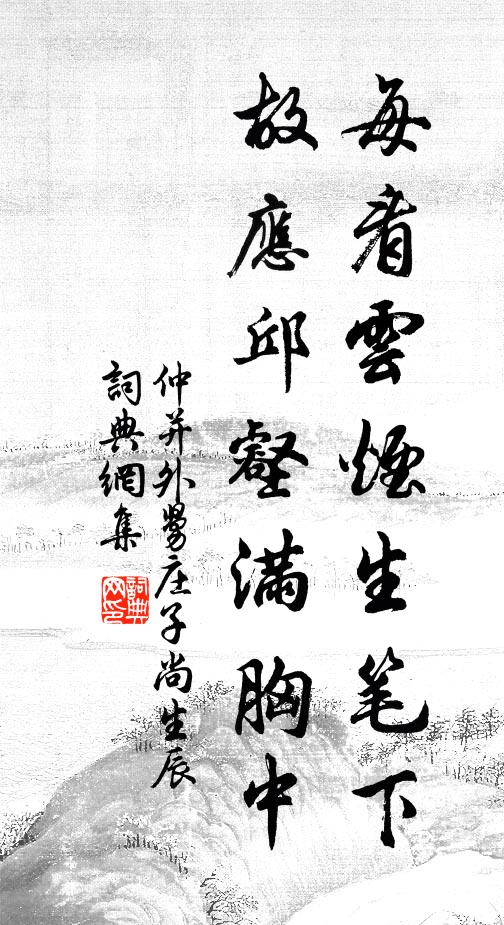 每看雲煙生笔下
故應邱壑滿胸中
仲并外舅庄子尚生辰
詞典網集
詞典网印